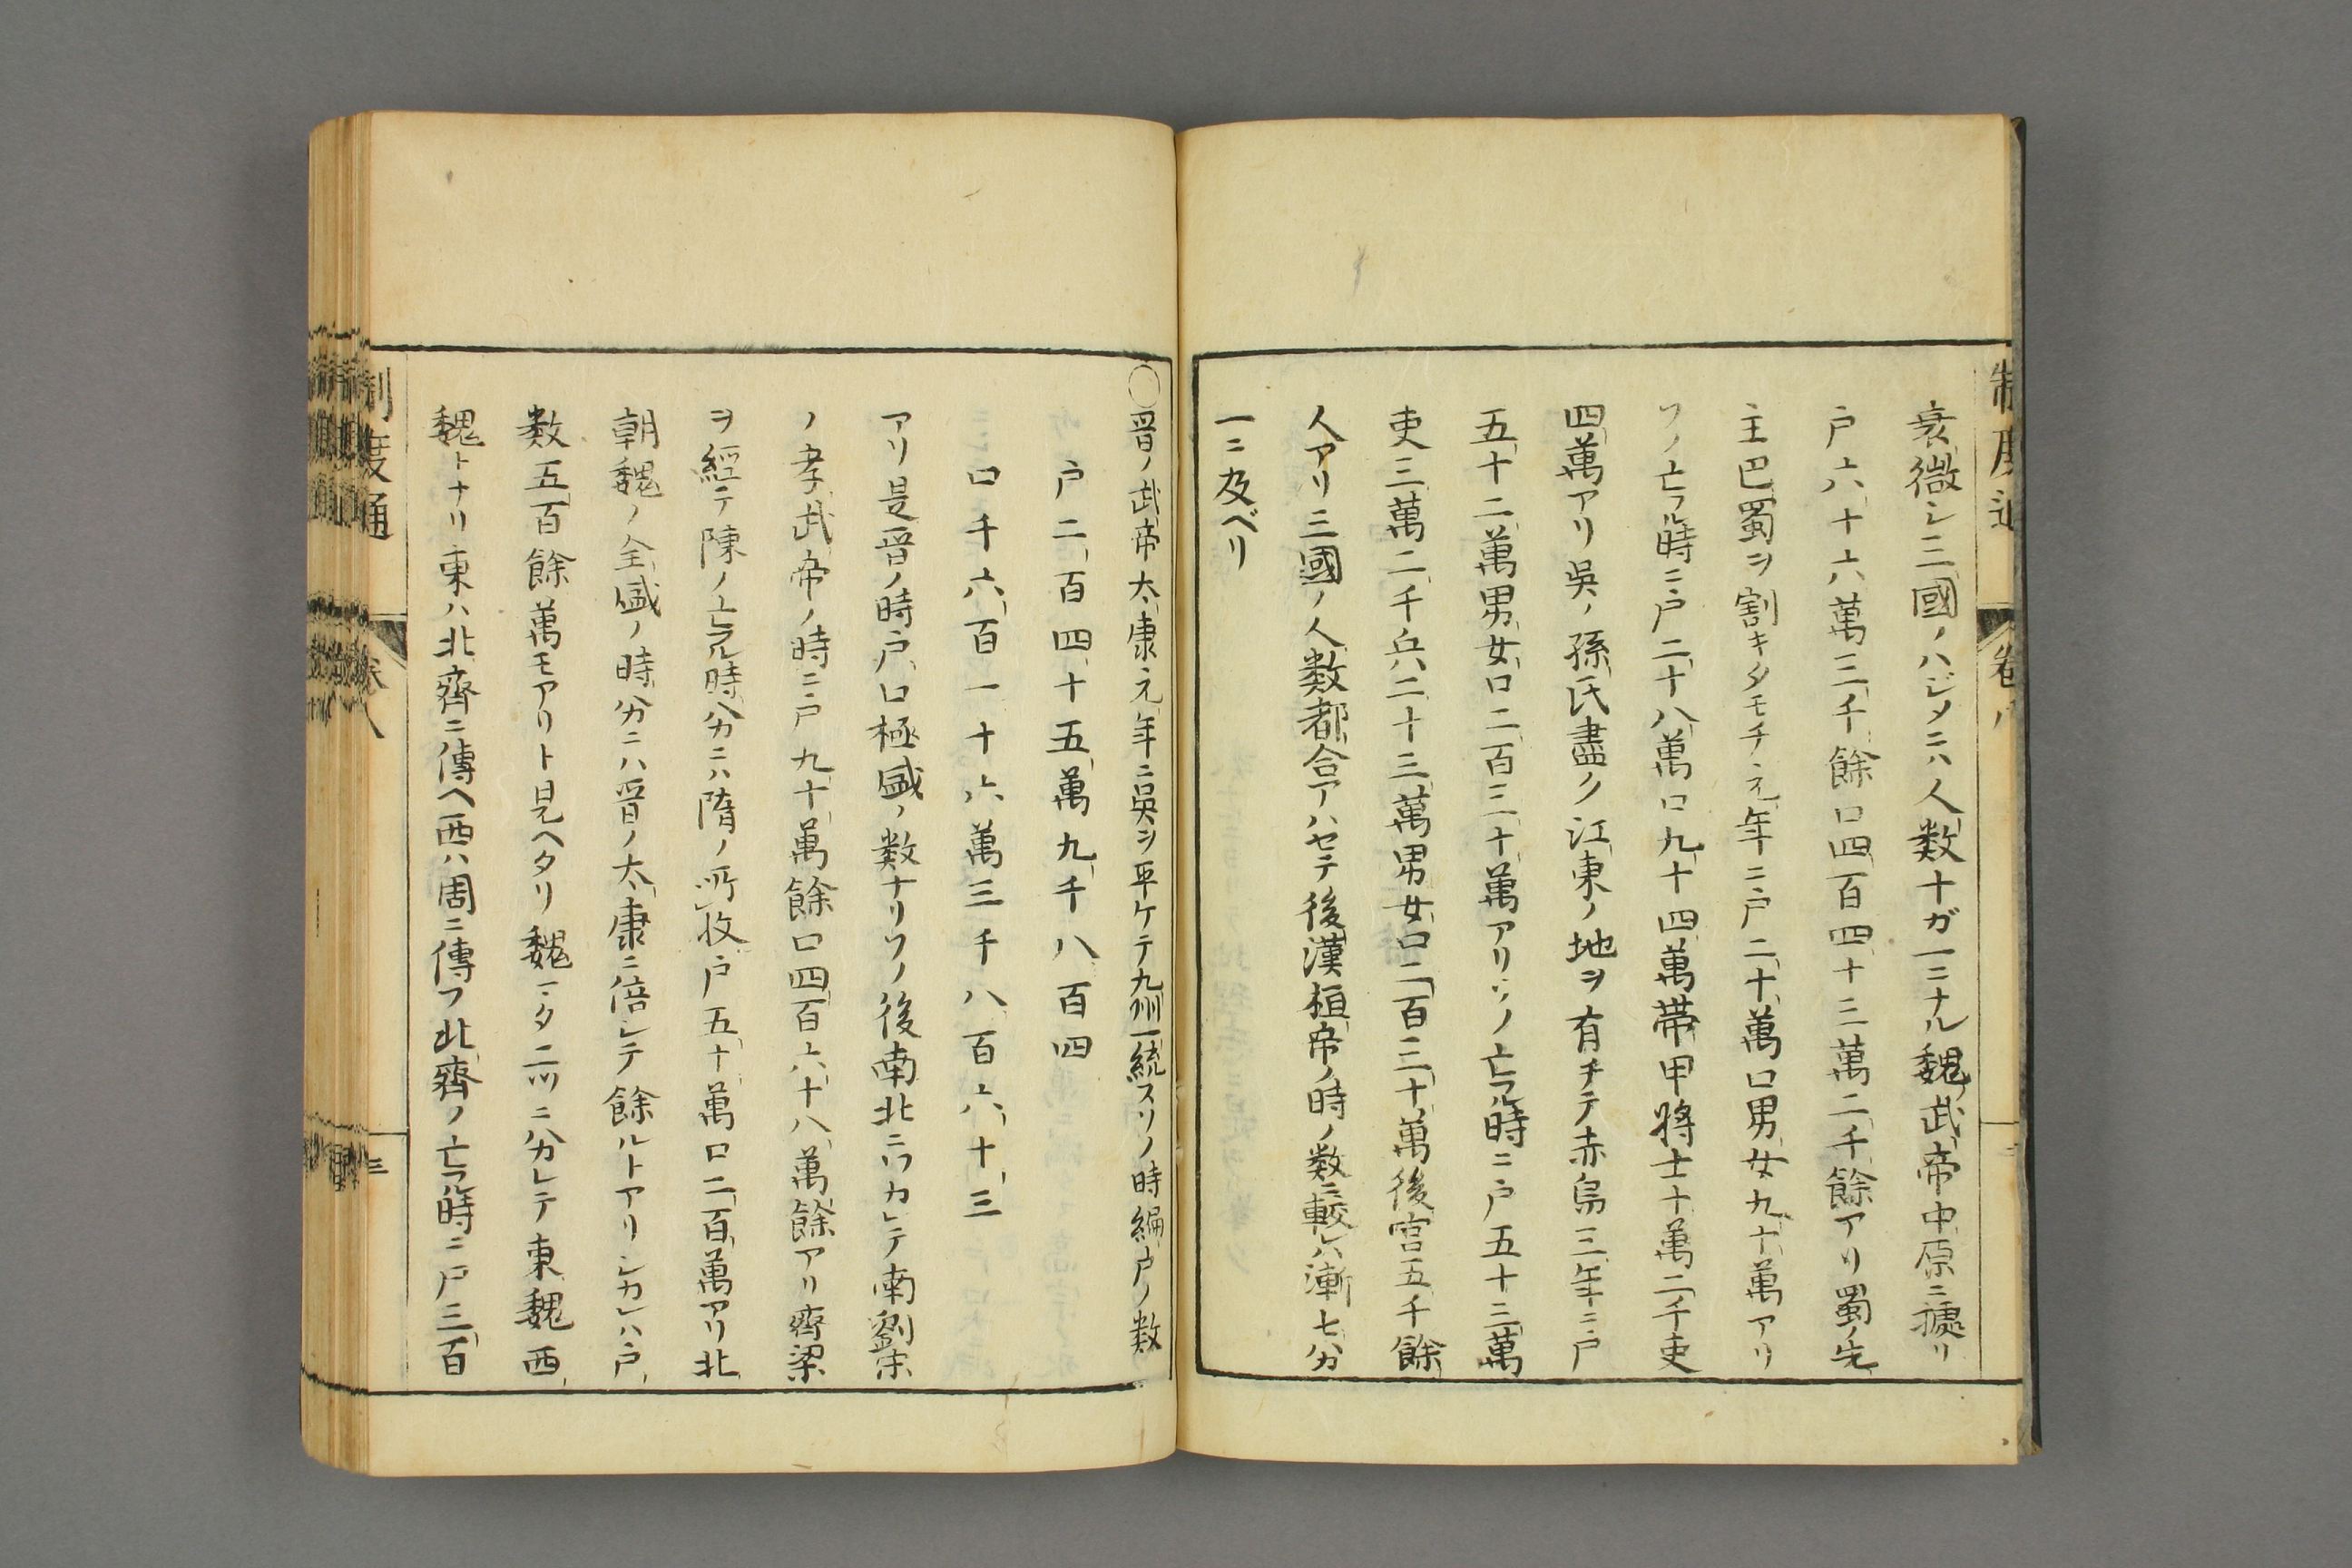 制度通
卷八
衰微シ三國ノハジメニハ人数十ガ一ニナル魏ノ武帝中原ニ據リ
戸六十六萬三千餘口四百四十三萬二千餘アリ蜀ノ先
主巴蜀ヲ割キタモチ元年ニ戸二十萬口男女九十萬アリ
ソノ亡フル時ニ戸二十八萬口九十四萬帶甲將士十萬二千吏
四萬アリ吳ノ孫氏盡ク江東ノ地ヲ有チテ赤烏三年ニ戸
五十二萬男女口二百三十萬アリソノ亡フル時ニ戸五十三萬
吏三萬二千兵二十三萬男女口二百三十萬後宮五千餘
人アリ三國ノ人数都合アハセテ後漢桓帝ノ時ノ数ニ較レハ漸七分
一ニ及ベリ
〇晉ノ武帝太康元年ニ吳ヲ平ケテ九州一統スソノ時編戸ノ数
戸二百四十五萬九千八百四
口千六百一十六萬三千八百六十三
アリ是晉ノ時戸口極盛ノ数ナリソノ後南北ニワカレテ南劉宋
ノ孝武帝ノ時ニ戸九十萬餘口四百六十八萬餘アリ齊梁
ヲ經テ陳ノ亡フル時分ニハ隋ノ所收戸五十萬口二百萬アリ北
朝魏ノ全盛ノ時分ニハ晉ノ太康ニ倍シテ餘ルトアリシカレハ戸
数五百餘萬モアリト見ヘタリ魏マタ二ツニ分レテ東魏西
魏トナリ東ハ北齊ニ傳ヘ西ハ周ニ傳フ北齊ノ亡フル時ニ戸三百
制度通
卷八
三